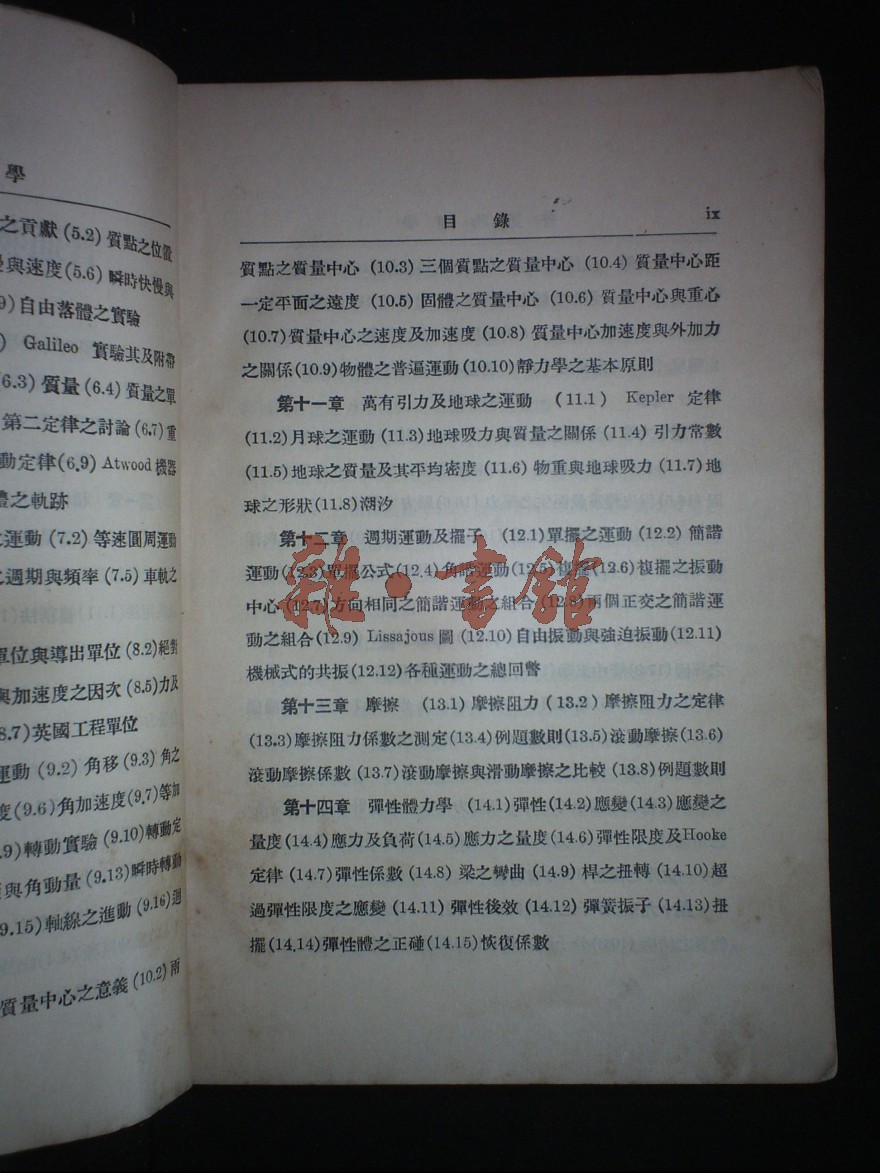 學
之貢獻 (5.2) 質點之位置
與速度(5.6) 瞬時快慢與
9)自由落體之實驗
) Galileo 實驗其及附帶
(6.3) 質量(6.4) 質量之單
第二定律之討論(6.7)重
動定律(6.9) Atwood 機器
體之軌跡
之運動 (7.2) 等速圓周運動
之週期與頻率(7.5) 車軌之
單位與導出單位(8.2)絕對
與加速度之因次(8.5)力及
8.7)英國工程單位
運動 (9.2) 角移 (9.3) 角之
度(9.6)角加速度(9.7)等加
.9)轉動實驗 (9.10)轉動定
與角動量(9.13)瞬時轉動
9.15)軸線之進動(9.16)迴
質量中心之意義(10.2) 兩
目錄 ix
質點之質量中心 (10.3) 三個質點之質量中心 (10.4) 質量中心距
一定平面之遠度 (10.5) 固體之質量中心 (10.6) 質量中心與重心
(10.7)質量中心之速度及加速度 (10.8) 質量中心加速度與外加力
之關係(10.9)物體之普遍運動(10.10)靜力學之基本原則
第十一章 萬有引力及地球之運動 (11.1) Kepler 定律
(11.2)月球之運動(11.3)地球吸力與質量之關係(11.4) 引力常數
(11.5)地球之質量及其平均密度(11.6) 物重與地球吸力(11.7)地
球之形狀(11.8)潮汐
第十二章 週期運動及擺子 (12.1)單擺之運動 (12.2) 簡諧
運動(12.3)單擺公式(12.4)角諧運動(12.5)複擺(12.6)複擺之振動
中心(12.7)方向相同之簡諧運動之組合(12.8)兩個正交之簡諧運
動之組合(12.9) Lissajous圖(12.10)自由振動與強迫振動(12.11)
機械式的共振(12.12)各種運動之總回瞥
第十三章 摩擦 (13.1) 摩擦阻力(13.2) 摩擦阻力之定律
(13.3)摩擦阻力係數之測定(13.4)例題數則(13.5)滾動摩擦(13.6)
滾動摩擦係數 (13.7)滾動摩擦與滑動摩擦之比較 (13.8)例題數則
第十四章 彈性體力學 (14.1)彈性(14.2)應變(14.3)應變之
量度(14.4)應力及負荷(14.5)應力之量度(14.6)彈性限度及Hooke
定律(14.7)彈性係數(14.8) 梁之彎曲 (14.9) 桿之扭轉 (14.10)超
過彈性限度之應變 (14.11) 彈性後效 (14.12) 彈簧振子(14.13)扭
擺(14.14)彈性體之正碰(14.15)恢復係數
雜·書館